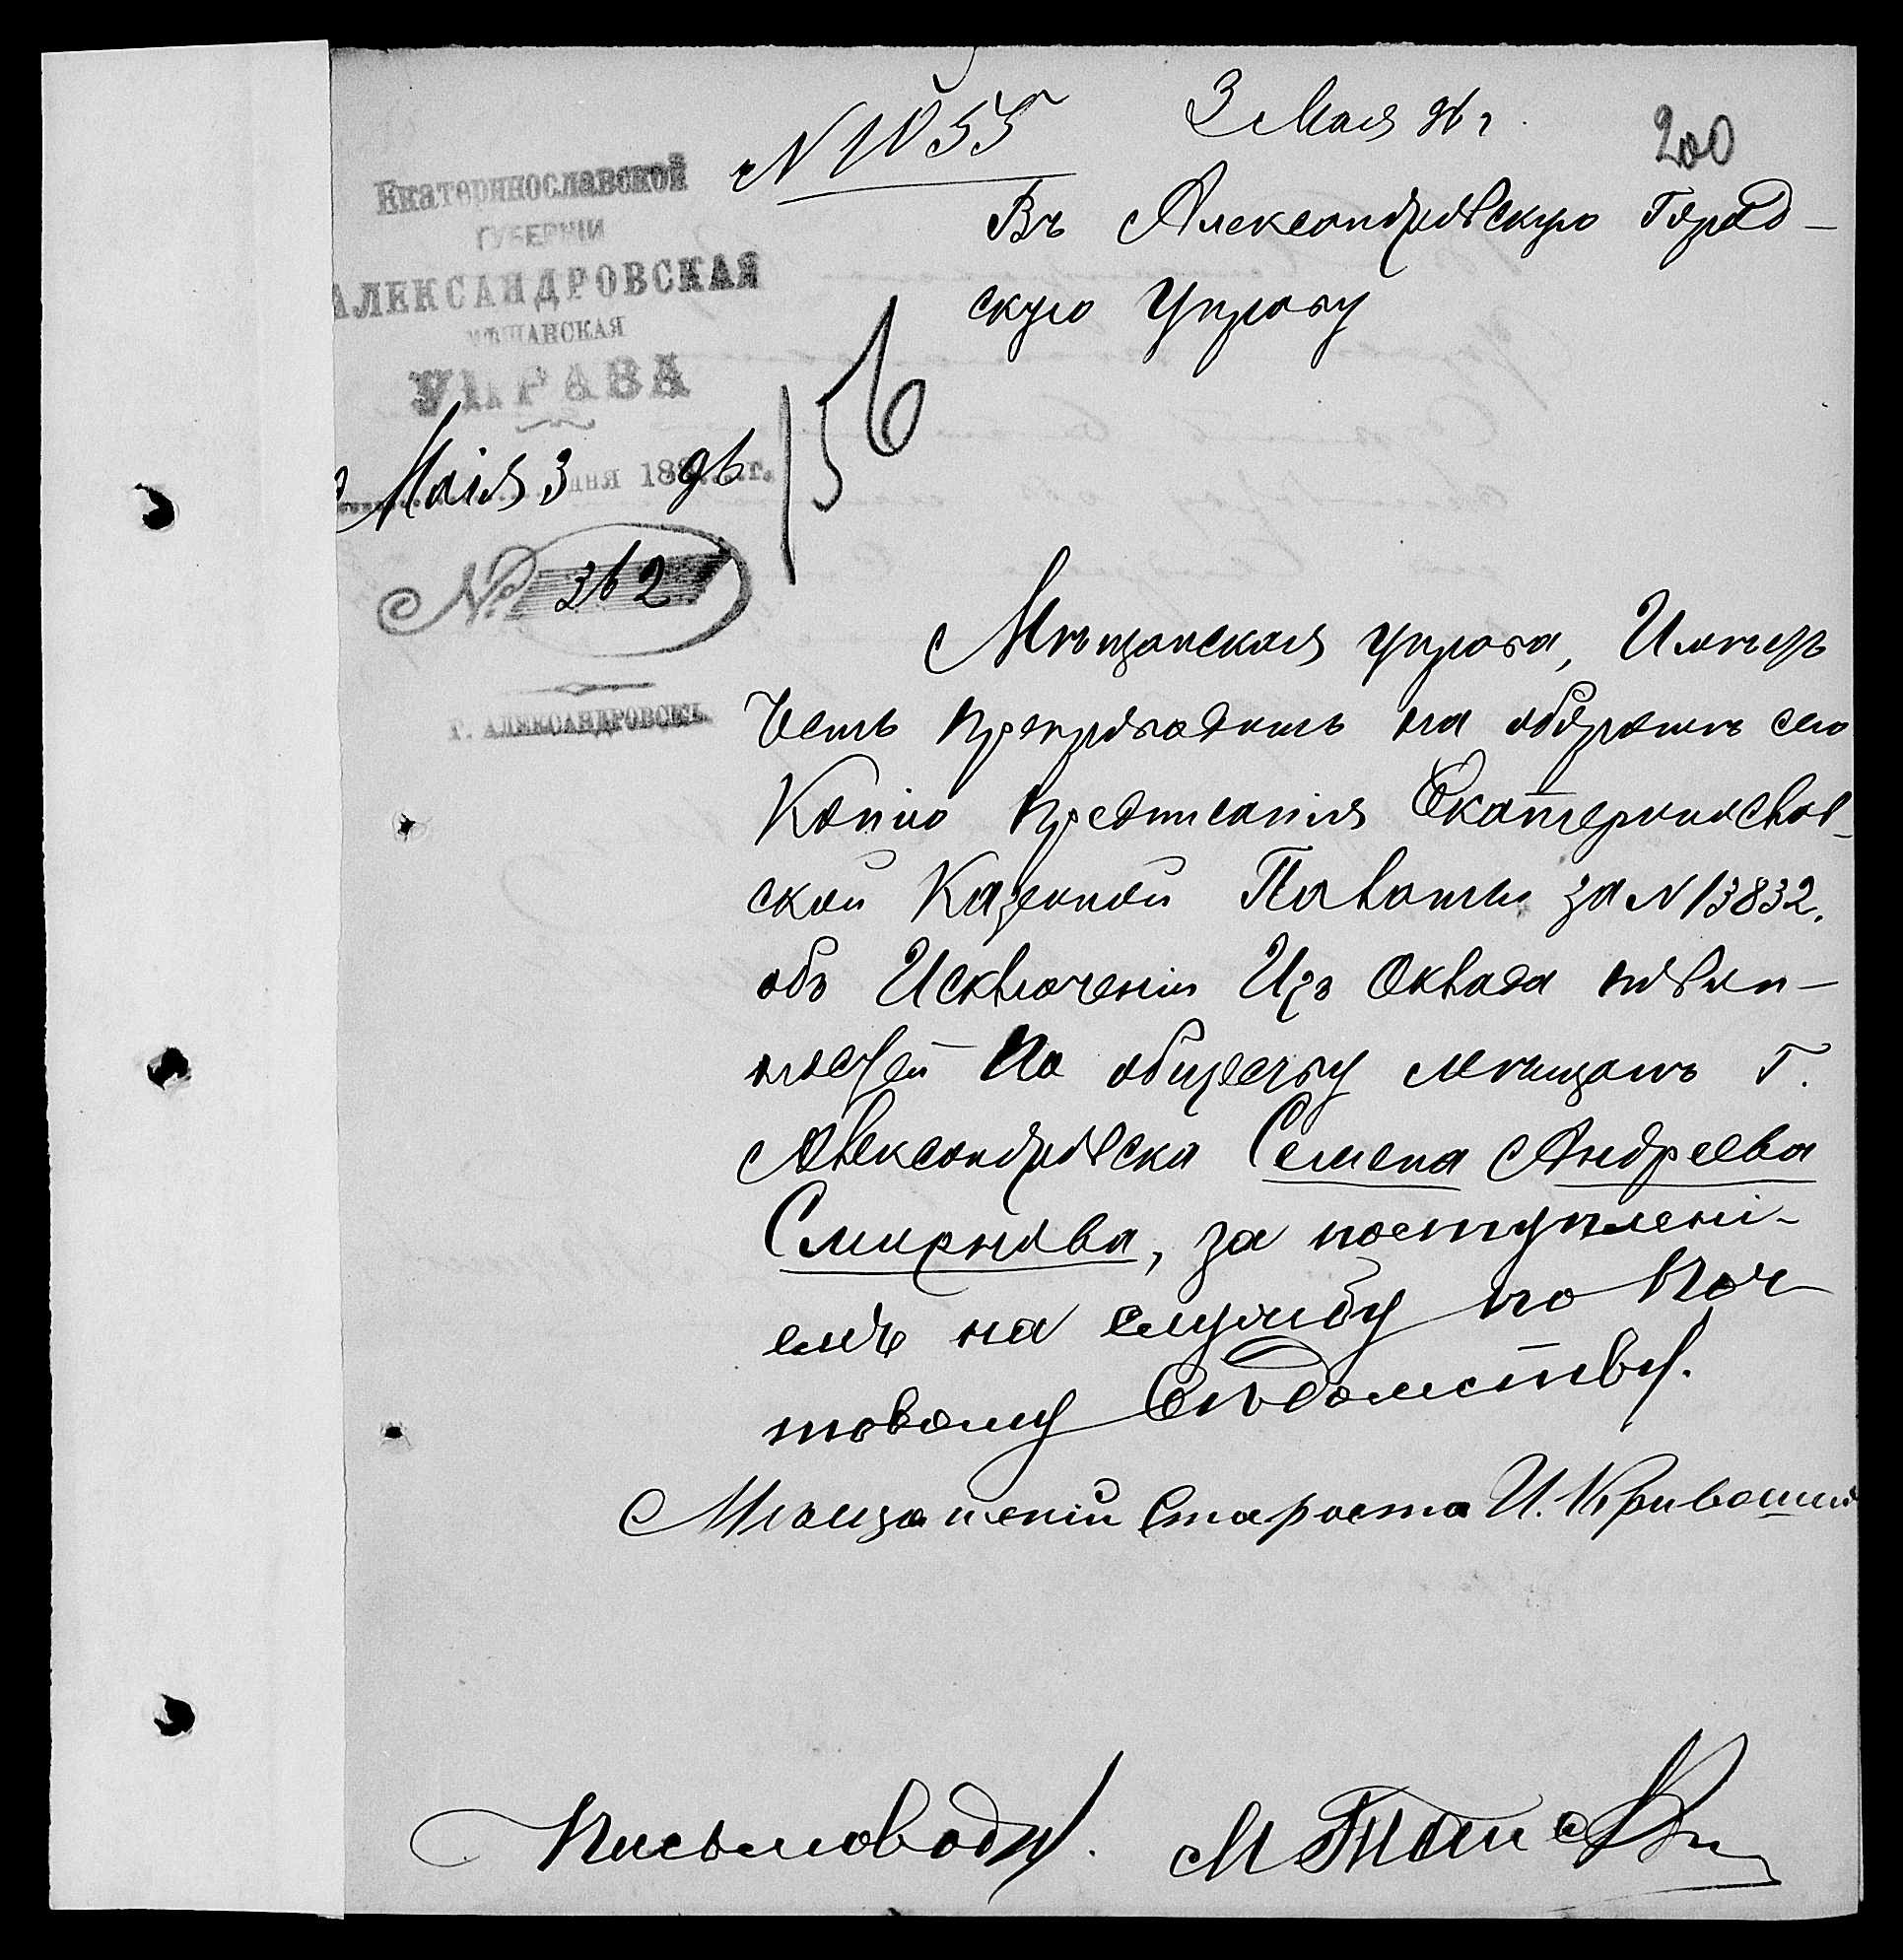 N 1055 3 Мая 96 г.
200
Екатеринославской
ГУБЕРНІИ
АЛЕКСАНДРОВСКАЯ
МѢЩАНСКАЯ
УПРАВА
Маія 3 дня 1896 г.
№ 362
Г. АЛЕКСАНДРОВСКЪ.
156
Въ Александровскую Город-
скую Управу
Мѣщанская управа, Имѣетъ
Честь препровадить на оборотѣ сего
Копію предписанія Екатеринослав-
ской Казенной Палаты за N 13832.
объ Исключеніи Изъ Оклада повин-
ностей по обществу мѣщанъ г.
Александровска Семена Андреева
Смирнова, за поступлені-
емъ на службу по Поч-
товому Вѣдомству.
Мѣщанскій Староста И. Кривошия
Письмоводи.